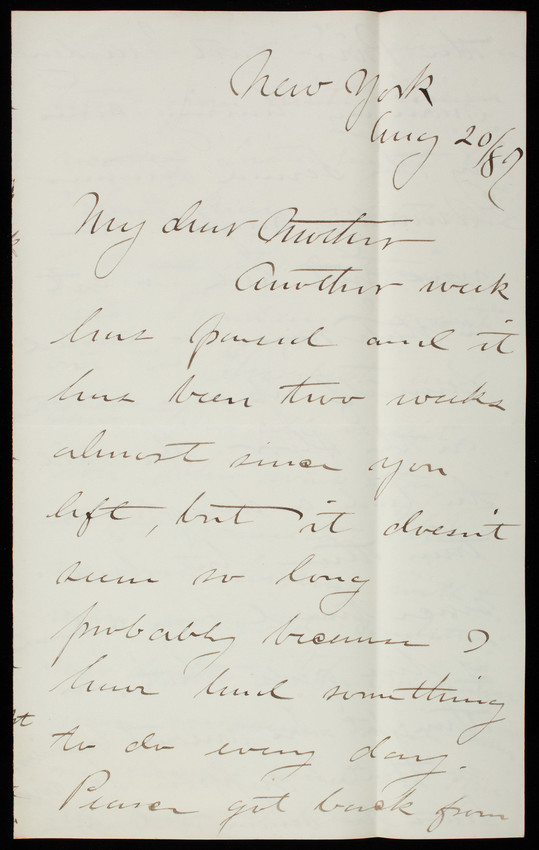 New York
Aug 20/87
My dear Mother
Another week
has passed and it
has been two weeks
almost since you
left, but it doesn't
seem so long
probably because I
have had something
to do every day.
got back from